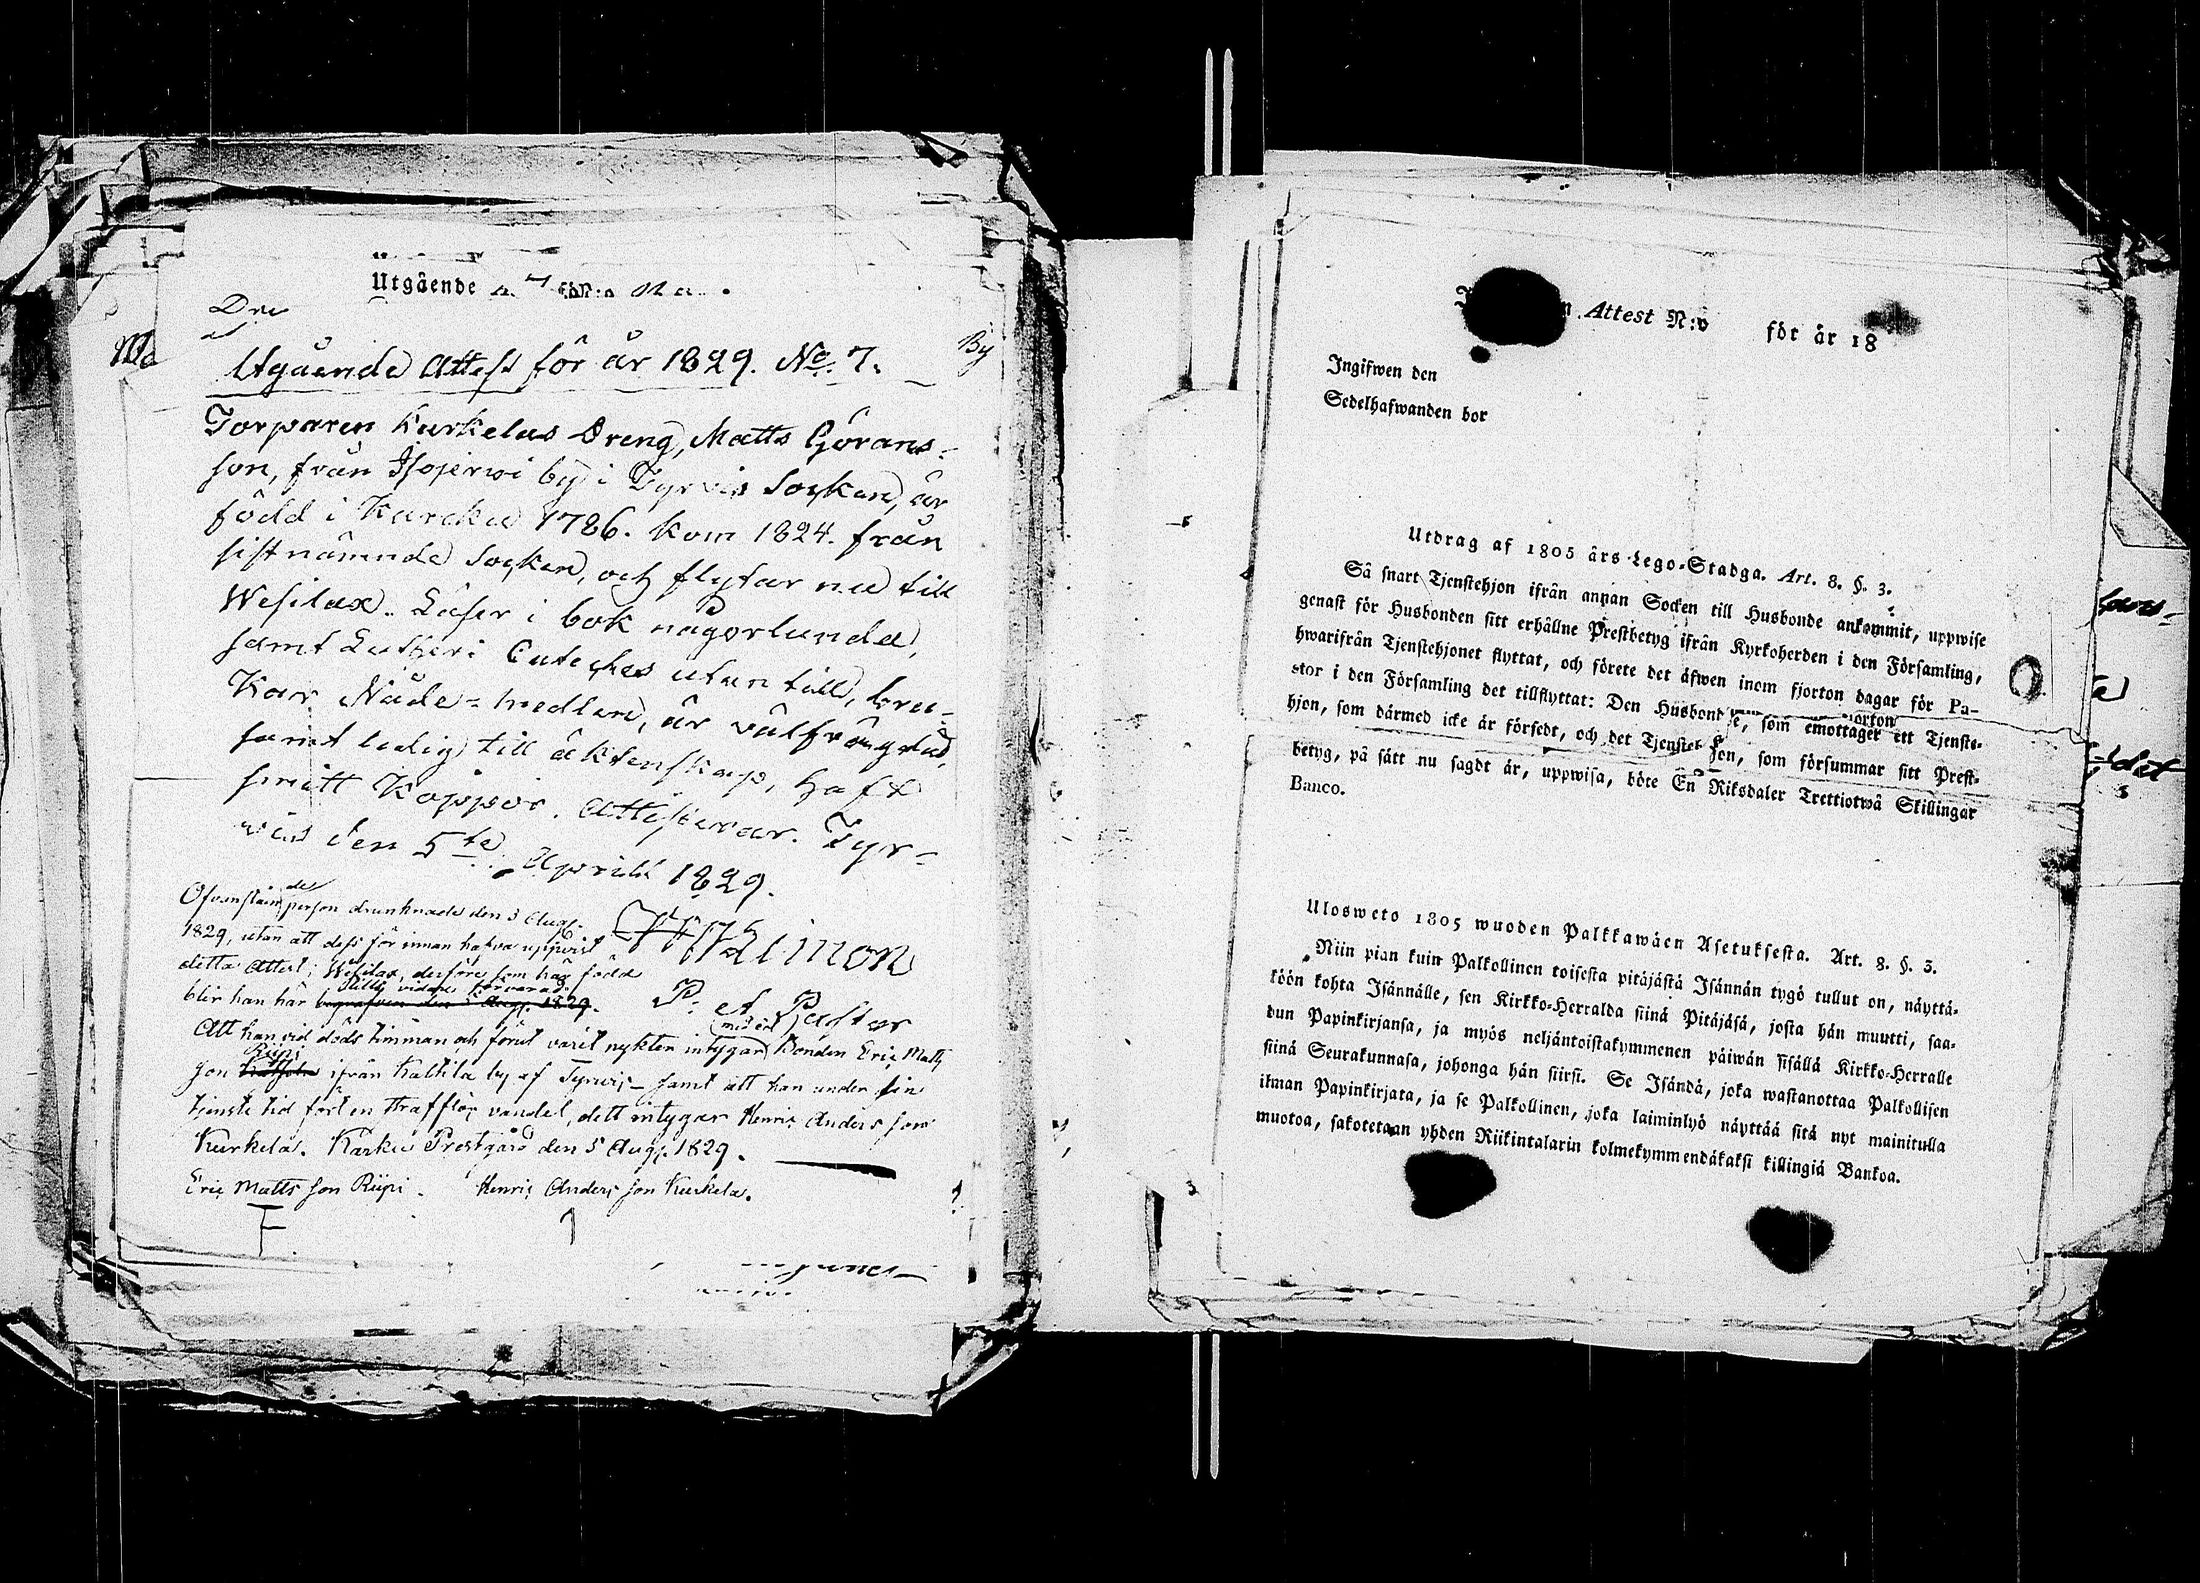 Utgående
Dre
Ma
By
Utgående Attest för år 1829. No. 7.
Torparen Kurkelas Dreng, Matts Görans-
son, från Isojerwi by i Tyrvis Sockn, är
född i Karcku 1786. kom 1824. från
sistnämnde Sockn, och flytar nu till
Wesilax. Läser i bok någorlunda,
samt Lutheri Cateches utan till, bru-
kar Nåde-medlen, är välfrägdad,
samt ledig till äktenskap, haft
smått Koppor. Attesterar. Tyr-
vis den 5te Aprill 1829.
P. A. Pastor
Ofvanstående person drunknade den 3 Aug.
1829, utan att dess för innan hafva uppvist
detta Attest i Wesilax, derföre som här född
blir han här begrafven den 5 Aug. 1829.
Att han vid döds timman och förut varit nykter intygar med ed Bonden Eric Matts
son Riipi ifrån Kaltila by af Tyrvis - samt att han under sin
tjenste tid fört en strafflös vandel, dett intygar Henric Anders son
Kurkela. Karku Prestgård den 5 Aug. 1829.
Eric Matts son Riipi. Henric Anders son Kurkela.
Attest N:o för år 18
Ingifwen den
Sedelhafwanden bor
Utdrag af 1805 års Lego-Stadga. Art. 8. §. 3.
Så snart Tjenstehjon ifrån annan Socken till Husbonde ankommit, uppwise
genast för Husbonden sitt erhållne Prestbetyg ifrån Kyrkoherden i den Församling,
hwarifrån Tjenstehjonet flyttat, och förete det äfwen inom fjorton dagar för Pa-
stor i den Församling det tillflyttat: Den Husbonde, som emottager ett Tjenste-
hjon, som därmed icke är försedt, och det Tjenstehjon, som försummar sitt Prest-
betyg, på sätt nu sagdt är, uppwisa, böte En Riksdaler Trettiotwå Skillingar
Banco.
Ulosweto 1805 wuoden Palkkawäen Asetuksesta. Art. 8. §. 3.
Niin pian kuin Palkollinen toisesta pitäjästä Isännän tygö tullut on, näyttä-
köön kohta Isännälle, sen Kirkko-Herralda siinä Pitäjäsä, josta hän muutti, saa-
dun Papinkirjansa, ja myös neljäntoistakymmenen päiwän sisällä Kirkko-Herralle
siinä Seurakunnasa, johonga hän siirsi. Se Isändä, joka wastanottaa Palkollisen
ilman Papinkirjata, ja se Palkollinen, joka laiminlyö näyttää sitä nyt mainitulla
muotoa, sakotetaan yhden Riikintalarin kolmekymmendäkaksi killingiä Bankoa.